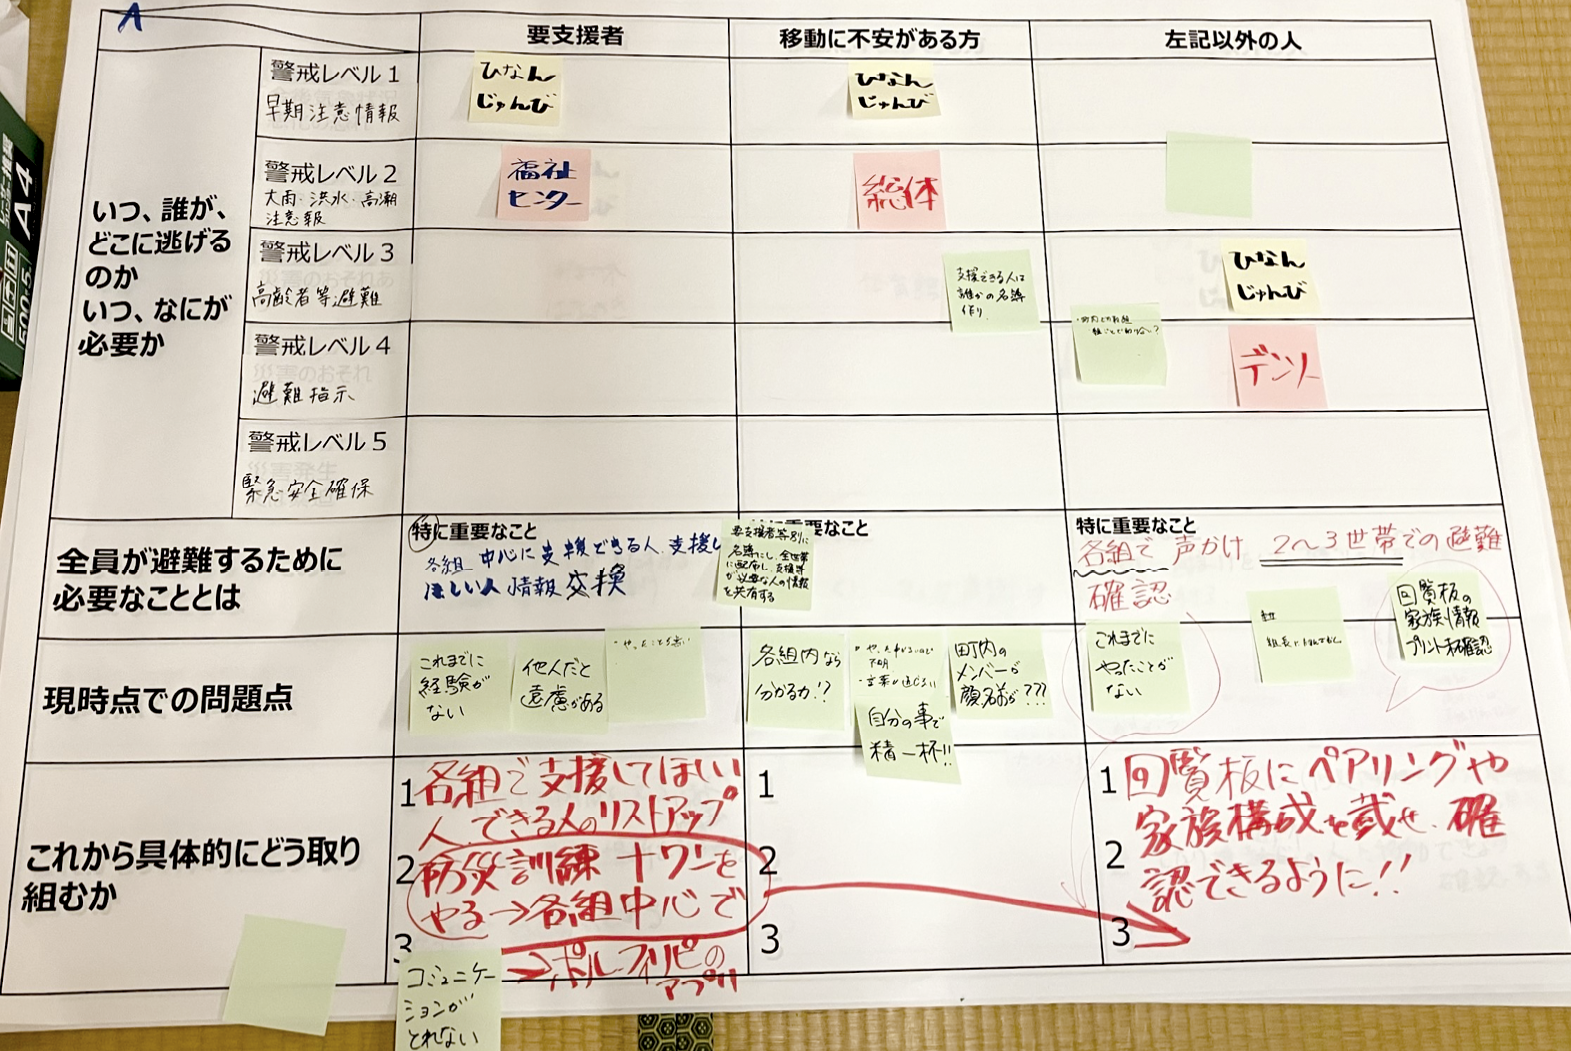 A
要支援者
移動に不安がある方
左記以外の人
いつ、誰が、
どこに逃げる
のか
いつ、なにが
必要か
警戒レベル1
早期注意情報
ひなん
じゅんび
ひなん
じゅんび
警戒レベル2
大雨・洪水・高潮
注意報
福祉
センター
総体
警戒レベル3
高齢者等避難
支援できる人は
誰かの名簿
作り
ひなん
じゅんび
警戒レベル4
避難指示
デンソー
警戒レベル5
緊急安全確保
全員が避難するために
必要なこととは
特に重要なこと
各組 中心に支援できる人、支援し
ほしい人 情報交換
要支援者等別に
名簿にし、全世帯
に配布し、支援等
が必要な人の情報
を共有する
重要なこと
特に重要なこと
各組で声かけ 2〜3世帯での避難
確認
回覧板の
家族情報
プリント確認
現時点での問題点
これまでに
経験が
ない
他人だと
遠慮がある
各組内なら
分かるカ!?
不明
自分の事で
精一杯!!
町内の
メンバーが
顔名前が???
これまでに
やったことが
ない
これから具体的にどう取り
組むか
1 各組で支援してほしい
人、できる人のリストアップ
2 防災訓練 + ワンを
やる→各組中心で
3
→ポル・フィリピの
アプリ
コミュニケー
ションが
とれない
1
2
3
1 回覧板にペアリングや
家族構成を載せ、確
2
認できるように!!
3
A4
500